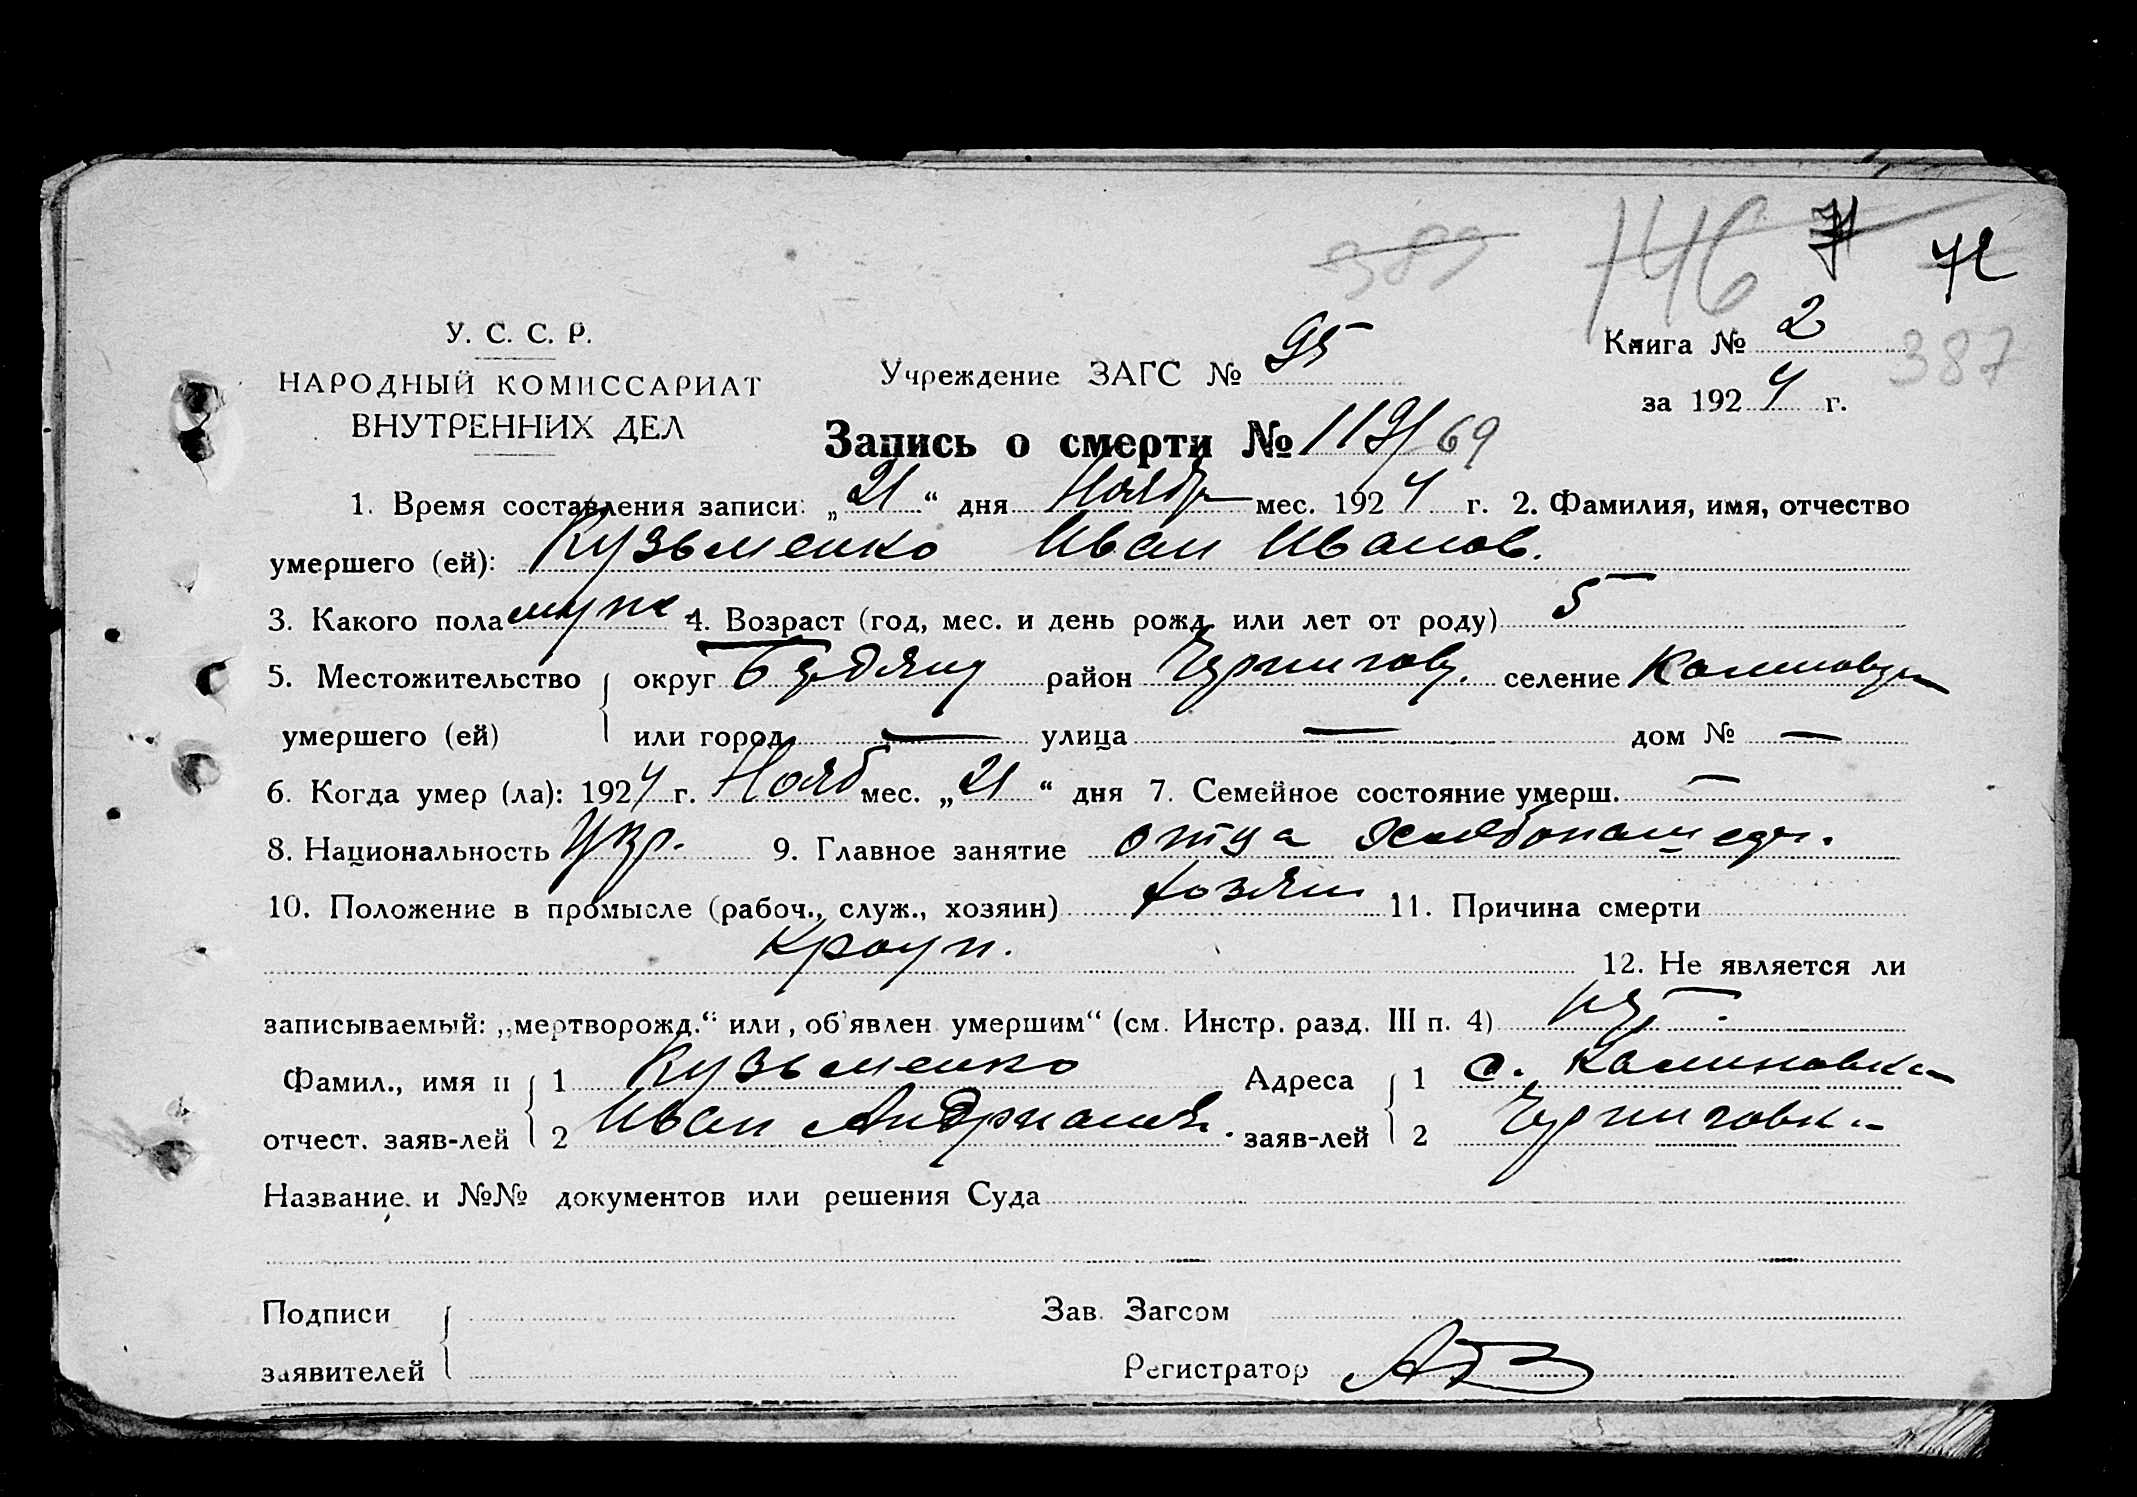 389 146 71 72
У. С. С. Р.
НАРОДНЫЙ КОМИССАРИАТ
ВНУТРЕННИХ ДЕЛ
Учреждение ЗАГС № 95
Книга № 2
387
за 1924 г.
Запись о смерти № 119/69
1. Время составления записи: „21“ дня Ноябр мес. 1924 г. 2. Фамилия, имя, отчество
умершего (ей): Кузьменко Иван Иванов.
3. Какого пола муж 4. Возраст (год, мес. и день рожд. или лет от роду) 5
5. Местожительство округ район Чернигов. селение Калиновка
умершего (ей) или город — улица — дом № —
6. Когда умер (ла): 1924 г. Нояб мес. „21“ дня 7. Семейное состояние умерш. —
8. Национальность Укр. 9. Главное занятие отца хлебопашец.
10. Положение в промысле (рабоч., служ., хозяин) хозяин 11. Причина смерти
Круп.
12. Не является ли
записываемый: „мертворожд.“ или „об'явлен умершим“ (см. Инстр. разд. III п. 4) нет.
Фамил., имя и 1 Кузьменко Адреса 1 с. Калиновка
отчест. заяв-лей 2 Иван Андрианов. заяв-лей 2 Черниговка
Название и №№ документов или решения Суда
Подписи Зав. Загсом
заявителей Регистратор